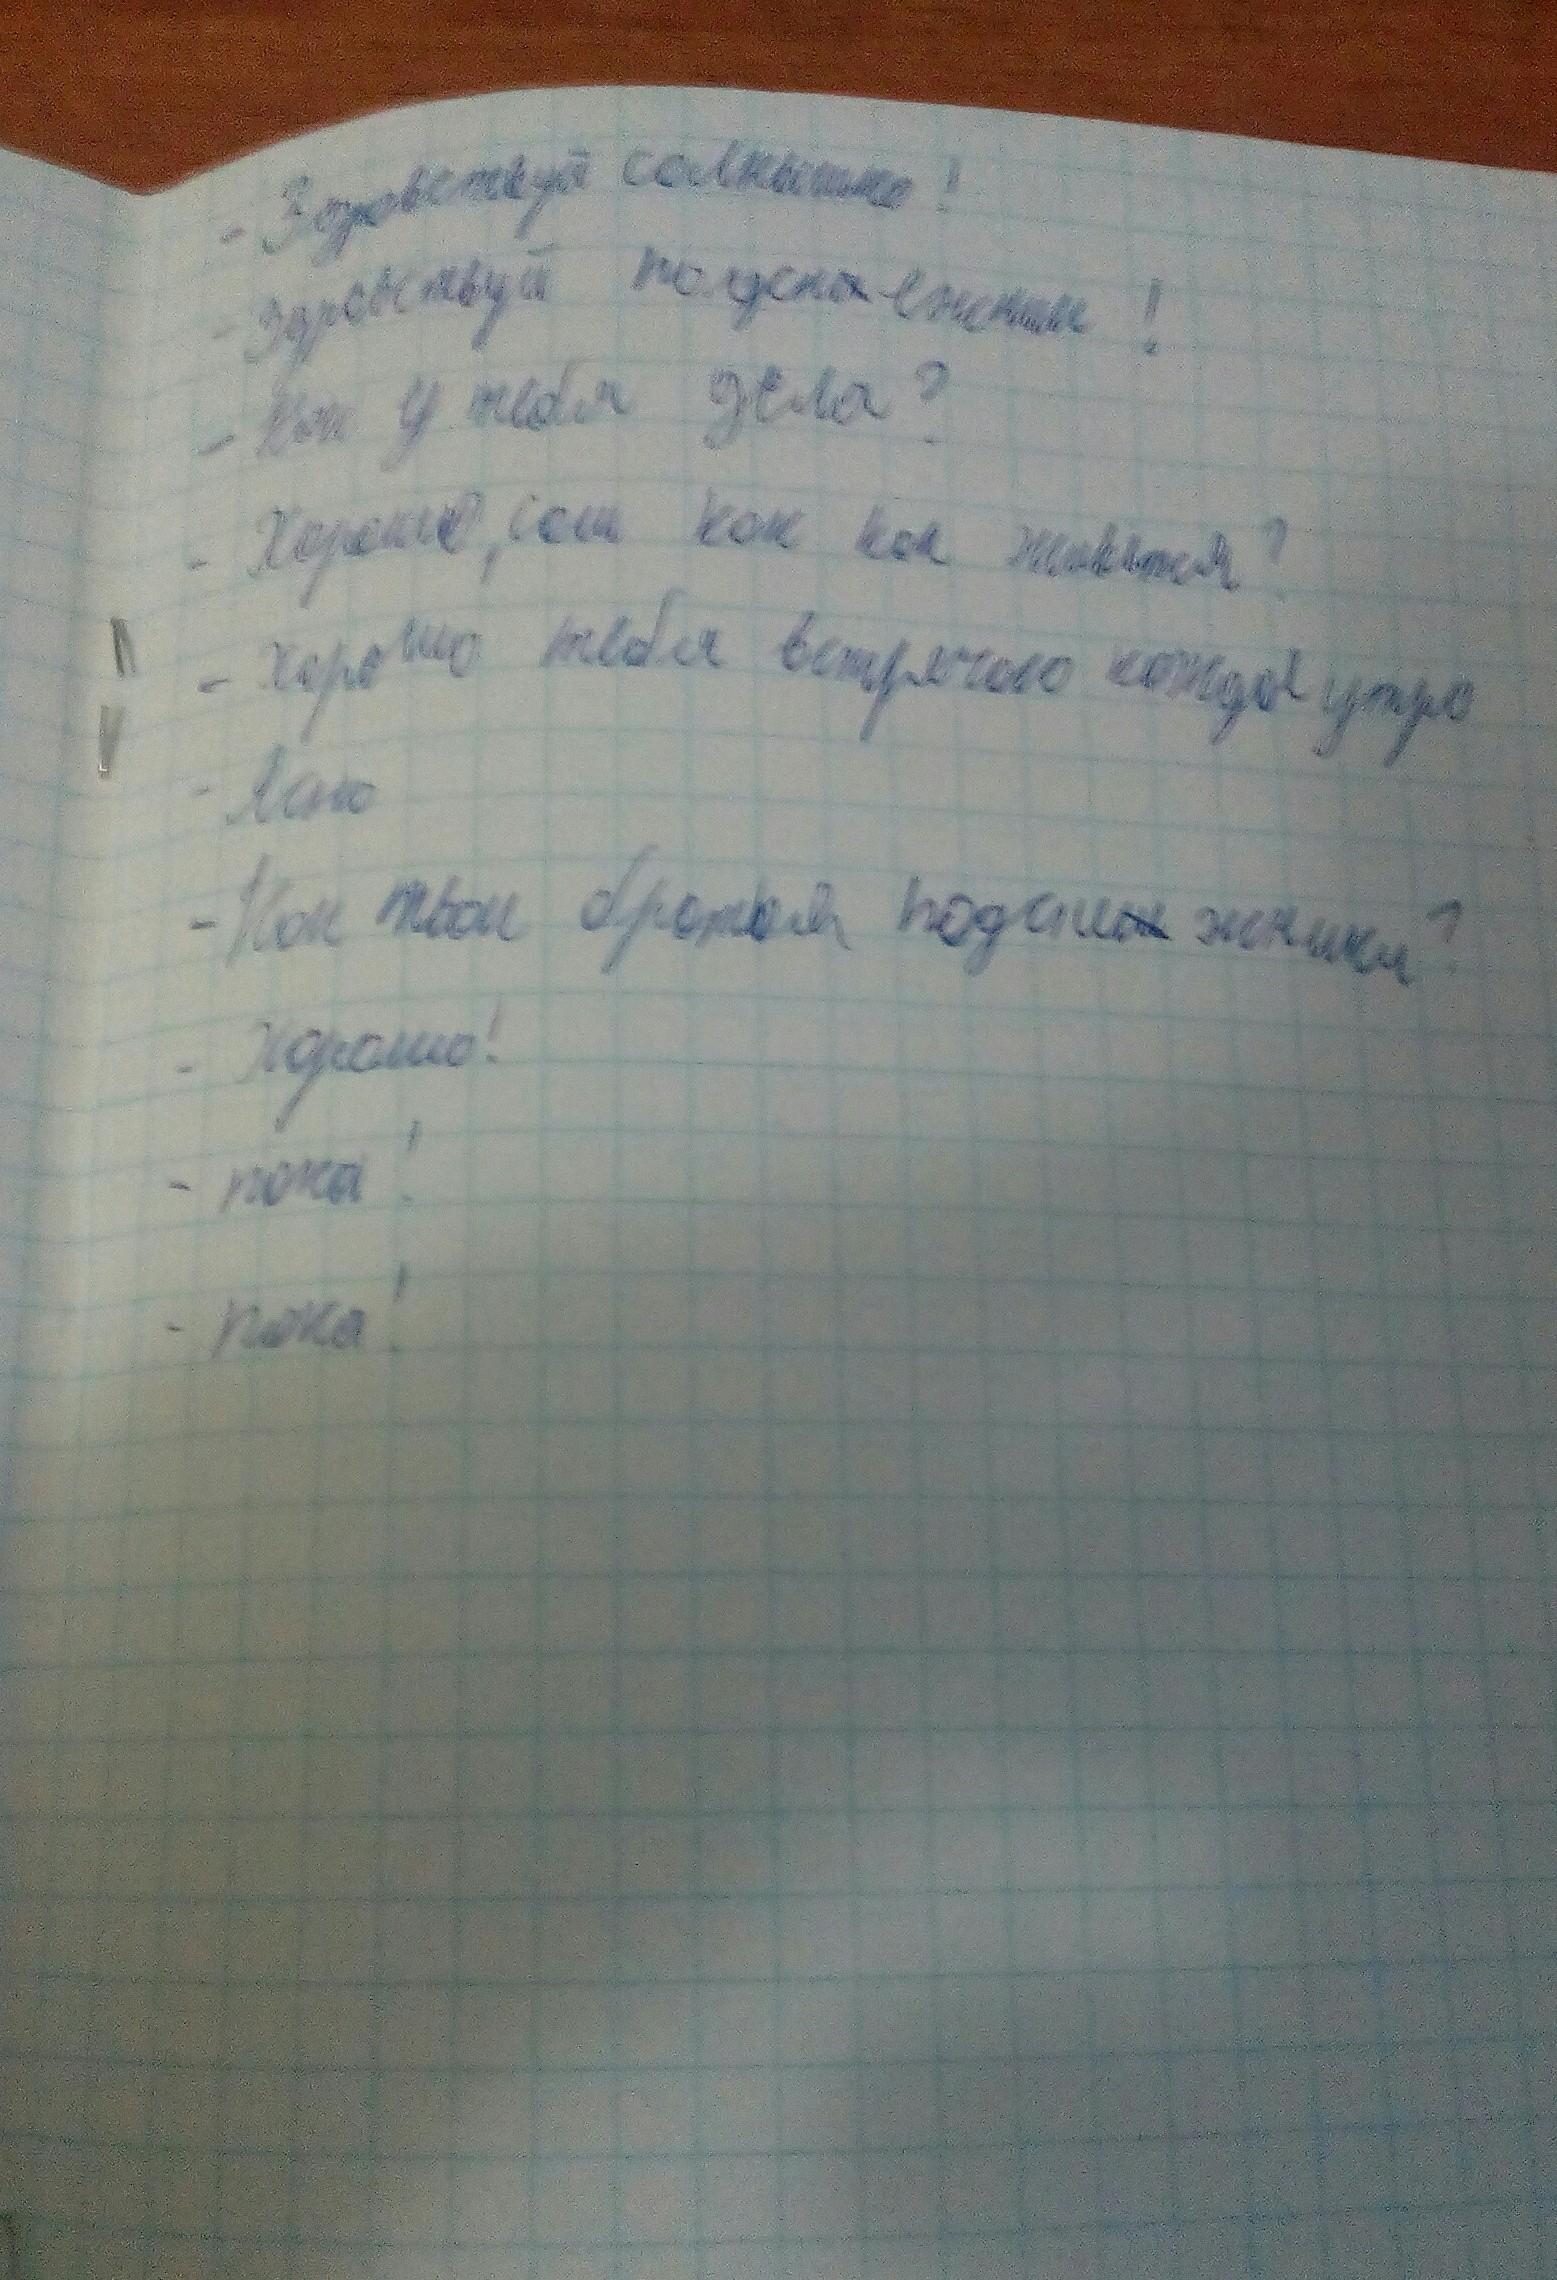 - Здравствуй солнышко!
- Здравствуй подснежник!
- Как у тебя дела?
- Хорошо, сам как как живётся?
- Хорошо тебя встречаю каждое утро
- Ясно
- Как твои братья подснежники?
- Хорошо!
- пока!
- пока!